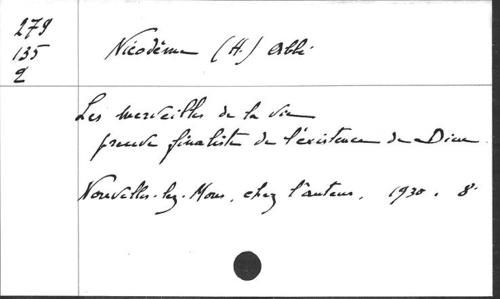 279
135
2
Nicodème (H.) Abbé
Les merveilles de la vie
preuve finaliste de l'existence de Dieu
Nouvelles-lez-Mons, chez l'auteur, 1930. 8°